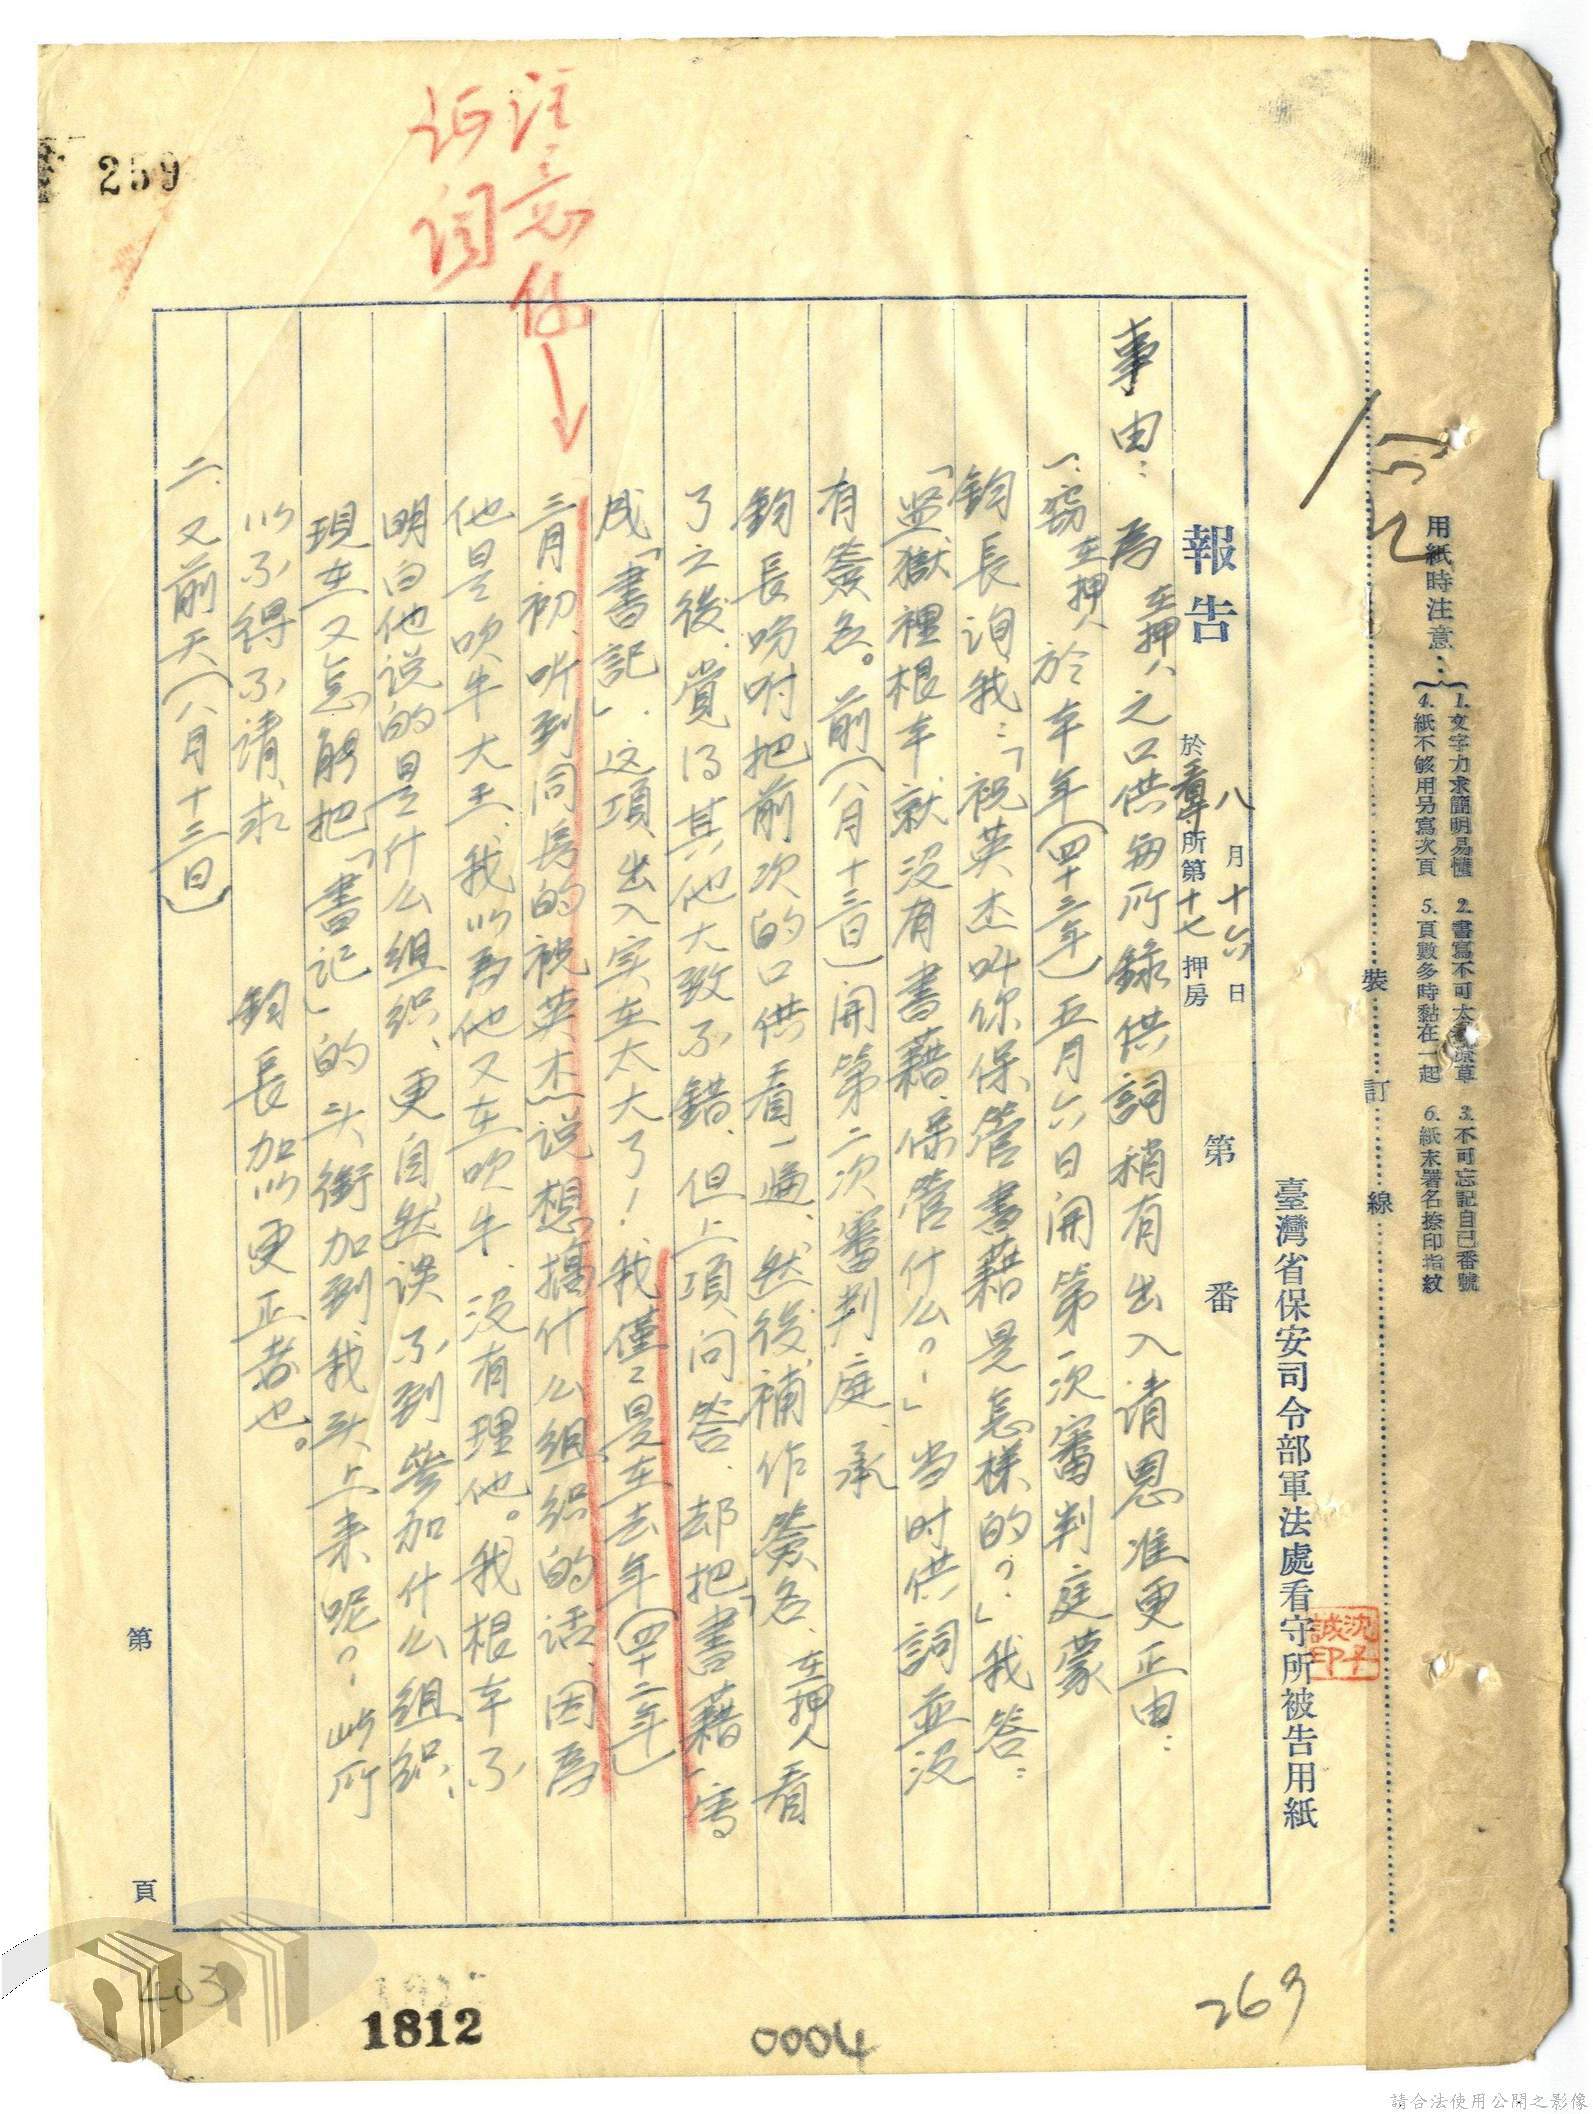 用紙時注意：
1. 文字力求簡明易懂 2. 書寫不可太潦草 3. 不可忘記自己番號
4. 紙不够用另寫次頁 5. 頁數多時黏在一起 6. 紙末署名捺印指紋
裝訂線
臺灣省保安司令部軍法處看守所被告用紙
報告 八月十六日
於看守所第十七押房
第 番
事由：為在押人之口供與所錄供詞稍有出入請恩准更正由：
一、竊在押人於本年(四十三年)五月六日開第一次審判庭蒙
鈞長詢我：「祝英杰叫你保管書藉是怎樣的？」我答：
「监獄裡根本就没有書藉、保管什么？」当时供詞並没
有簽名。前(八月十三日)開第二次審判庭、承
鈞長吩咐把前次的口供看一遍、然後補作簽名、在押人看
了之後、覚得其他大致不錯、但上項问答、却把「書藉」寫
成「書記」、这項出入実在太大了！我僅〻是在去年(四十二年)
三月初、听到同房的祝英杰说想搞什么组织的话、因為
他是吹牛大王、我以為他又在吹牛、没有理他。我根本不
明白他说的是什么组织、更自然谈不到參加什么组织、
現在又怎能把「書记」的头銜加到我头上来呢？此所
以不得不请求
鈞長加以更正者也。
二、又前天(八月十三日)
注意信
证词
259
沈子誠印
第 頁
403
1812
0004
269
請合法使用公開之影像